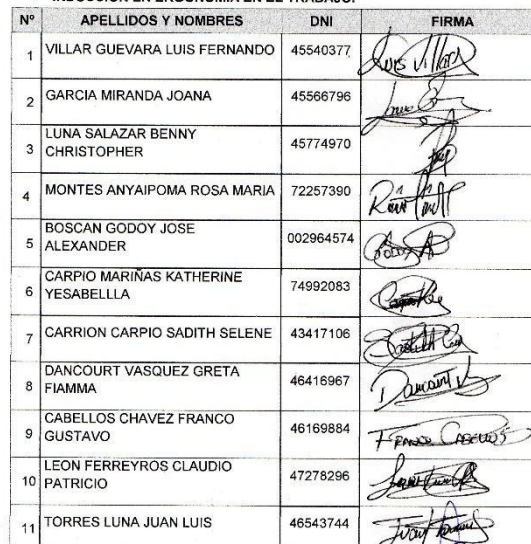 INDUCCIÓN EN ERGONOMIA EN EL TRABAJO.
Nº APELLIDOS Y NOMBRES DNI FIRMA
1 VILLAR GUEVARA LUIS FERNANDO 45540377 Luis Villar
2 GARCIA MIRANDA JOANA 45566796
3 LUNA SALAZAR BENNY
CHRISTOPHER 45774970
4 MONTES ANYAIPOMA ROSA MARIA 72257390
5 BOSCAN GODOY JOSE
ALEXANDER 002964574
6 CARPIO MARIÑAS KATHERINE
YESABELLLA 74992083
7 CARRION CARPIO SADITH SELENE 43417106
8 DANCOURT VASQUEZ GRETA
FIAMMA 46416967 Dancourt V
9 CABELLOS CHAVEZ FRANCO
GUSTAVO 46169884 FRANCO CABELLOS
10 LEON FERREYROS CLAUDIO
PATRICIO 47278296
11 TORRES LUNA JUAN LUIS 46543744